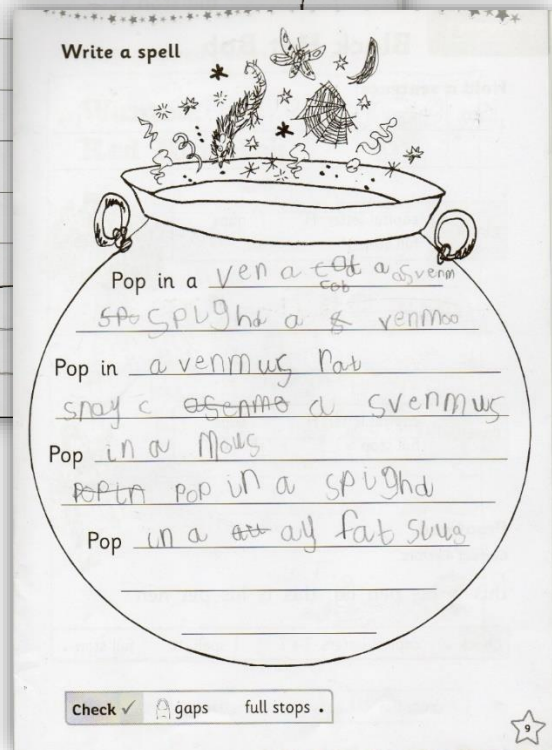 Write a spell
Pop in a ven a cod a a svenm
cob
spo spighd a g venmoo
Pop in a venmus rat
snay c asenmo a svenmus
Pop in a mous
POP in pop in a spighd
Pop in a att ay fat sluug
Check ✓ gaps full stops .
9